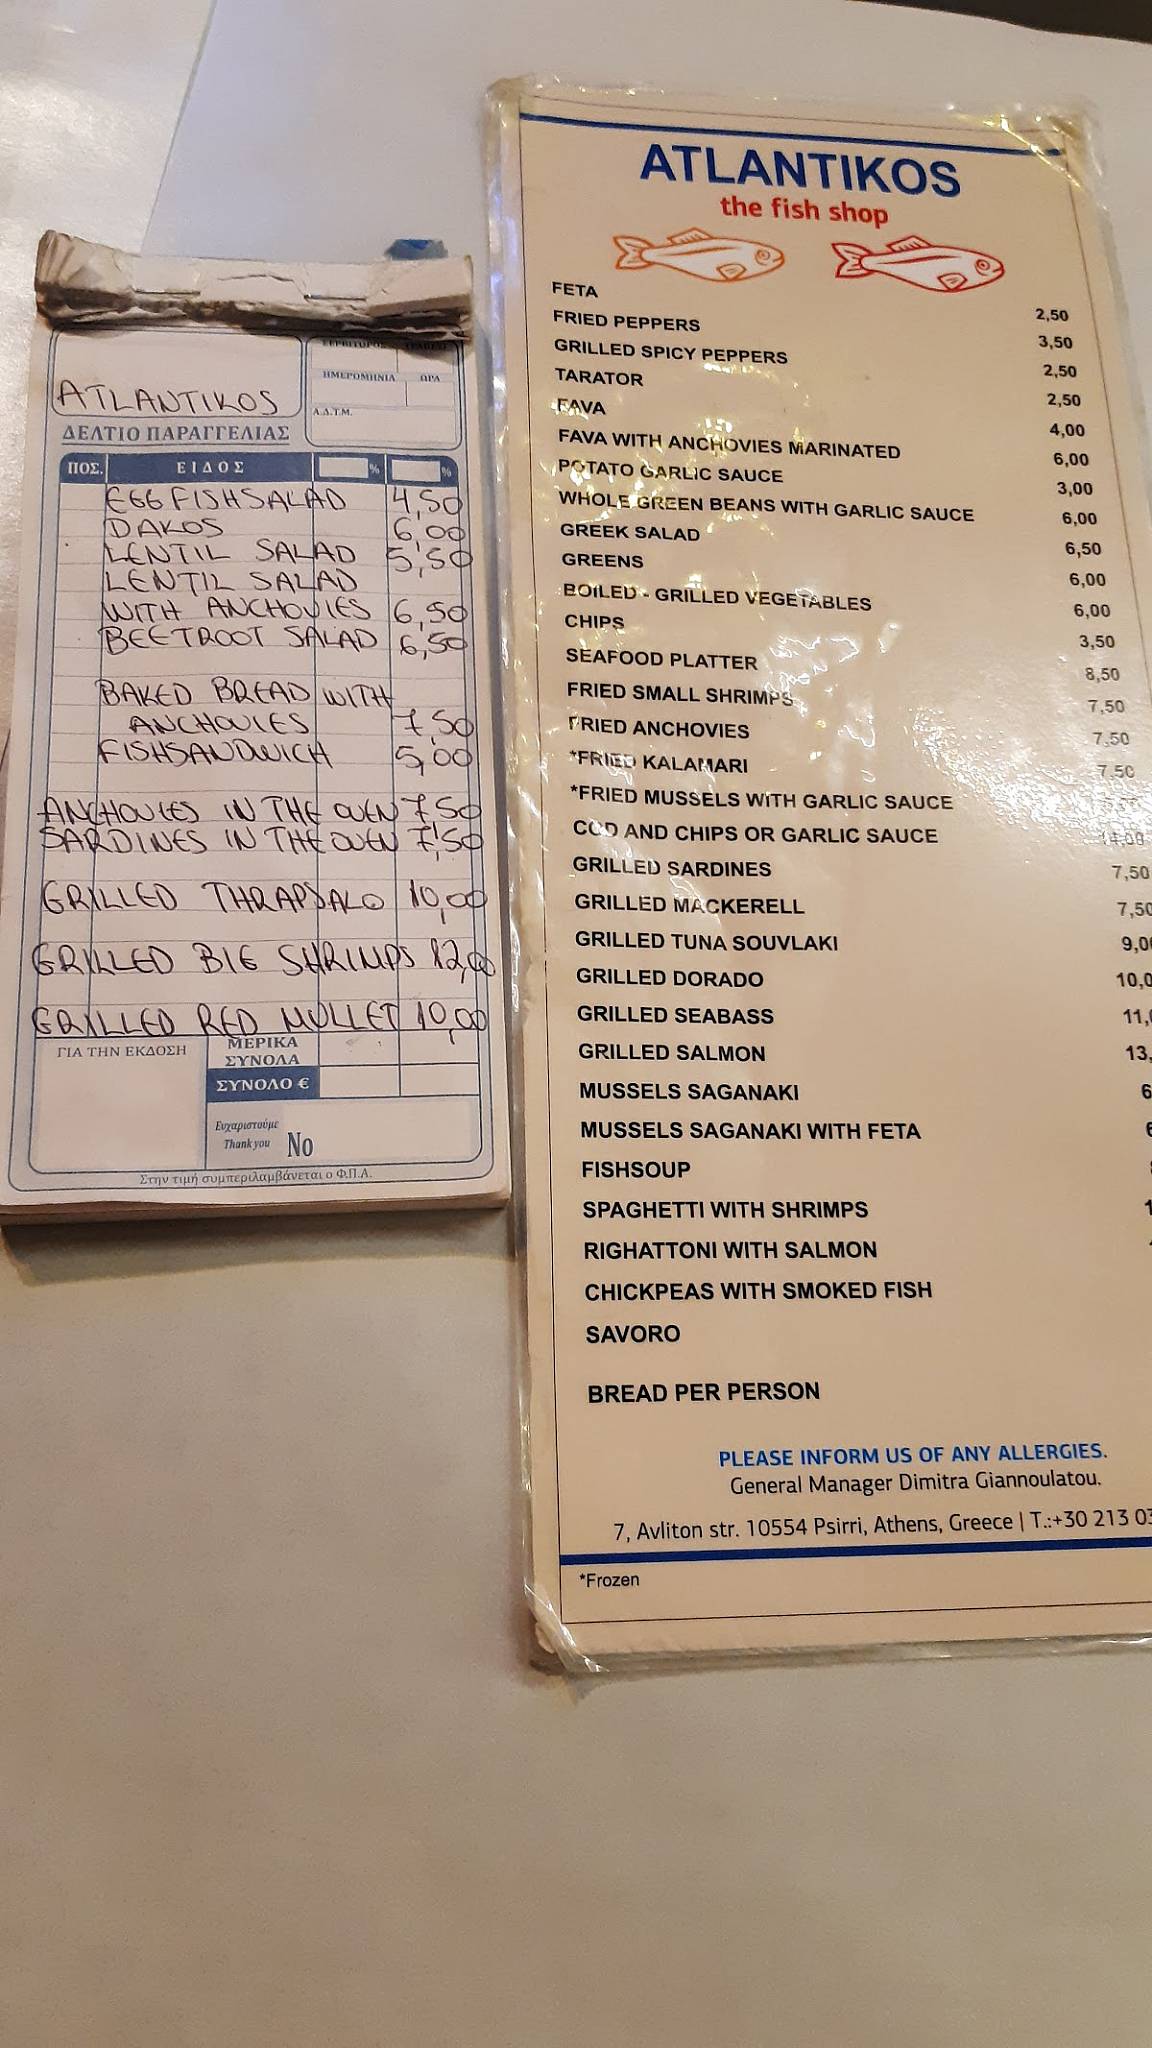 ATLANTIKOS
ΔΕΛΤΙΟ ΠΑΡΑΓΓΕΛΙΑΣ
ΗΜΕΡΟΜΗΝΙΑ ΩΡΑ
Α.Δ.Τ.Μ.
ΠΟΣ. ΕΙΔΟΣ % %
EGG FISHSALAD 4,50
DAKOS 6,00
LENTIL SALAD 5,50
LENTIL SALAD
WITH ANCHOVIES 6,50
BEETROOT SALAD 6,50
BAKED BREAD WITH
ANCHOVIES 7,50
FISHSANDWICH 5,00
ANCHOVIES IN THE OVEN 7,50
SARDINES IN THE OVEN 7,50
GRILLED THRAPSALO 10,00
GRILLED BIG SHRIMPS 12,00
GRILLED RED MULLET 10,00
ΓΙΑ ΤΗΝ ΕΚΔΟΣΗ
ΜΕΡΙΚΑ
ΣΥΝΟΛΑ
ΣΥΝΟΛΟ €
Ευχαριστούμε
Thank you No
Στην τιμή συμπεριλαμβάνεται ο Φ.Π.Α.
ATLANTIKOS
the fish shop
FETA 2,50
FRIED PEPPERS 3,50
GRILLED SPICY PEPPERS 2,50
TARATOR 2,50
FAVA 4,00
FAVA WITH ANCHOVIES MARINATED 6,00
POTATO GARLIC SAUCE 3,00
WHOLE GREEN BEANS WITH GARLIC SAUCE 6,00
GREEK SALAD 6,50
GREENS 6,00
BOILED - GRILLED VEGETABLES 6,00
CHIPS 3,50
SEAFOOD PLATTER 8,50
FRIED SMALL SHRIMPS 7,50
FRIED ANCHOVIES 7,50
*FRIED KALAMARI 7,50
*FRIED MUSSELS WITH GARLIC SAUCE
COD AND CHIPS OR GARLIC SAUCE
GRILLED SARDINES 7,50
GRILLED MACKERELL 7,50
GRILLED TUNA SOUVLAKI 9,0
GRILLED DORADO 10,0
GRILLED SEABASS 11,
GRILLED SALMON 13,
MUSSELS SAGANAKI 6
MUSSELS SAGANAKI WITH FETA
FISHSOUP
SPAGHETTI WITH SHRIMPS 1
RIGHATTONI WITH SALMON
CHICKPEAS WITH SMOKED FISH
SAVORO
BREAD PER PERSON
PLEASE INFORM US OF ANY ALLERGIES.
General Manager Dimitra Giannoulatou.
7, Avliton str. 10554 Psirri, Athens, Greece | T.:+30 213 03
*Frozen